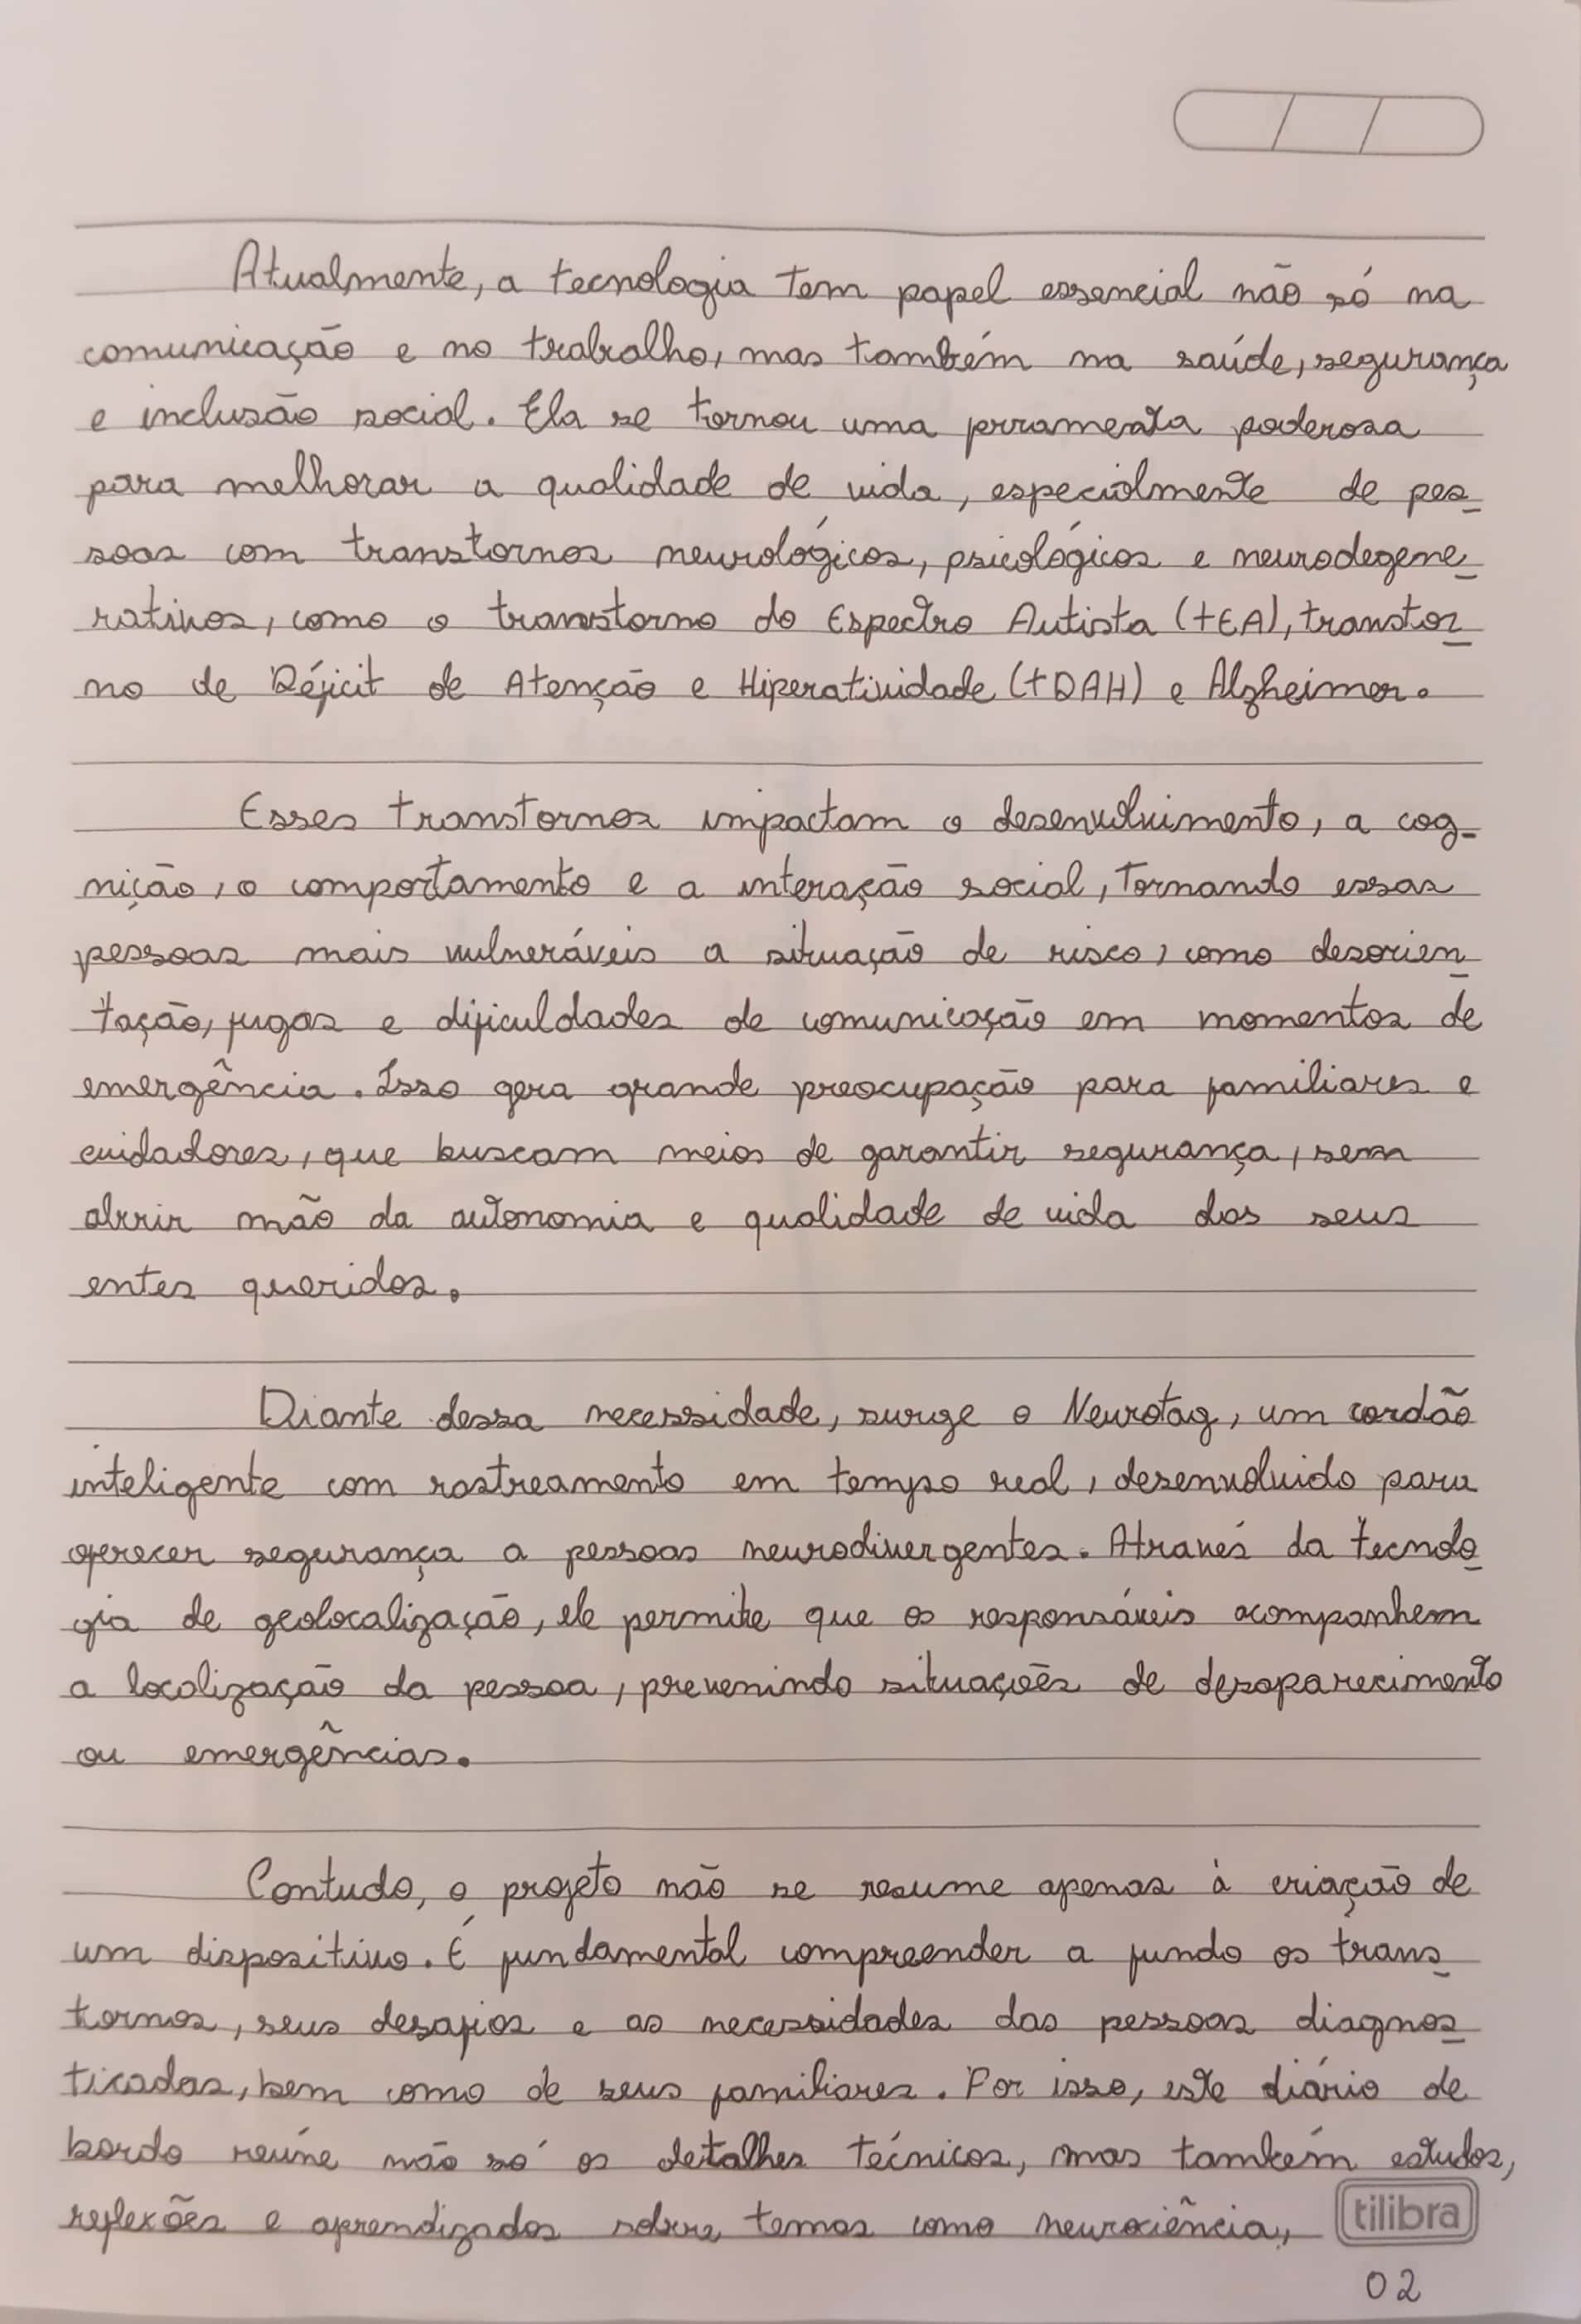 Atualmente, a tecnologia tem papel essencial não só na
comunicação e no trabalho, mas também na saúde, segurança
e inclusão social. Ela se tornou uma ferramenta poderosa
para melhorar a qualidade de vida, especialmente de pes-
soas com transtornos neurológicos, psicológicos e neurodegene-
rativos, como o transtorno do Espectro Autista (tEA), transtor-
no de Déficit de Atenção e Hiperatividade (tDAH) e Alzheimer.
Esses transtornos impactam o desenvolvimento, a cog-
nição, o comportamento e a interação social, tornando essas
pessoas mais vulneráveis a situação de risco, como desorien-
tação, fugas e dificuldades de comunicação em momentos de
emergência. Isso gera grande preocupação para familiares e
cuidadores, que buscam meios de garantir segurança, sem
abrir mão da autonomia e qualidade de vida dos seus
entes queridos.
Diante dessa necessidade, surge o Neurotag, um cordão
inteligente com rastreamento em tempo real, desenvolvido para
oferecer segurança a pessoas neurodivergentes. Através da tecnolo-
gia de geolocalização, ele permite que os responsáveis acompanhem
a localização da pessoa, prevenindo situações de desaparecimento
ou emergências.
Contudo, o projeto não se resume apenas à criação de
um dispositivo. É fundamental compreender a fundo os trans-
tornos, seus desafios e as necessidades das pessoas diagnos-
ticadas, bem como de seus familiares. Por isso, este diário de
bordo reúne não só os detalhes técnicos, mas também estudos,
reflexões e aprendizados sobre temas como neurociência,
tilibra
02